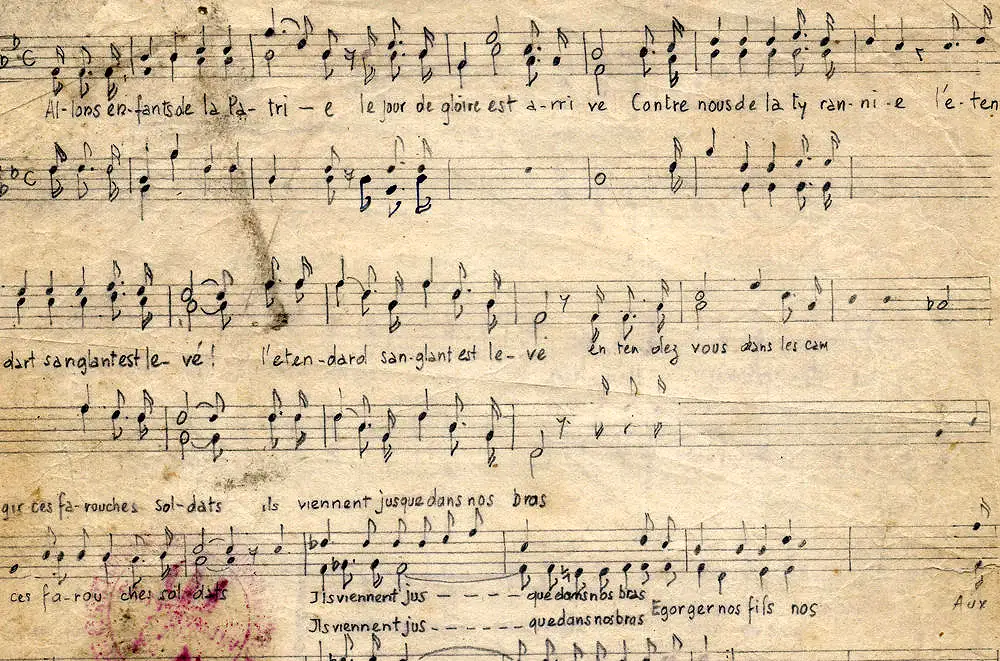 Al-lons en-fants de la Pa- tri - e le jour de gloire est a-rri ve Contre nous de la ty ran-ni-e l'é-ten
dart sanglant est le- vé! l'eten-dard san-glant est le- ve en ten dez vous dans les cam
gir ces fa-rouches Sol-dats ils viennent jusque dans nos bras
ces fa-rou ches sol dats Ils viennent jus - - - - - que dans nos bras Egorger nos fils nos Aux
Ils viennent jus - - - - - - que dans nos bras